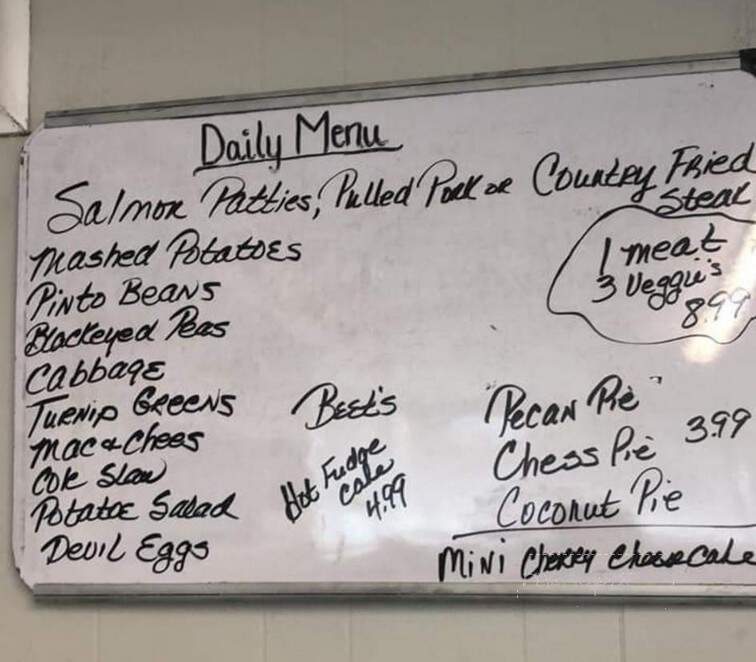 Daily Menu
Salmon Patties, Pulled Pork or Country Fried
Steak
1 meat
3 Veggie's
8.99
Mashed Potatoes
Pinto Beans
Blackeyed Peas
Cabbage
Turnip Greens
Mac & Chees
Cole Slaw
Potatoe Salad
Devil Eggs
Beet's
Hot Fudge
cake
4.99
"Pecan Pie"
Chess Pie 3.99
Coconut Pie
Mini Cherry Cheesecake